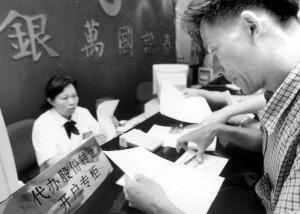 銀萬國證券
代办股份转让
开户专柜